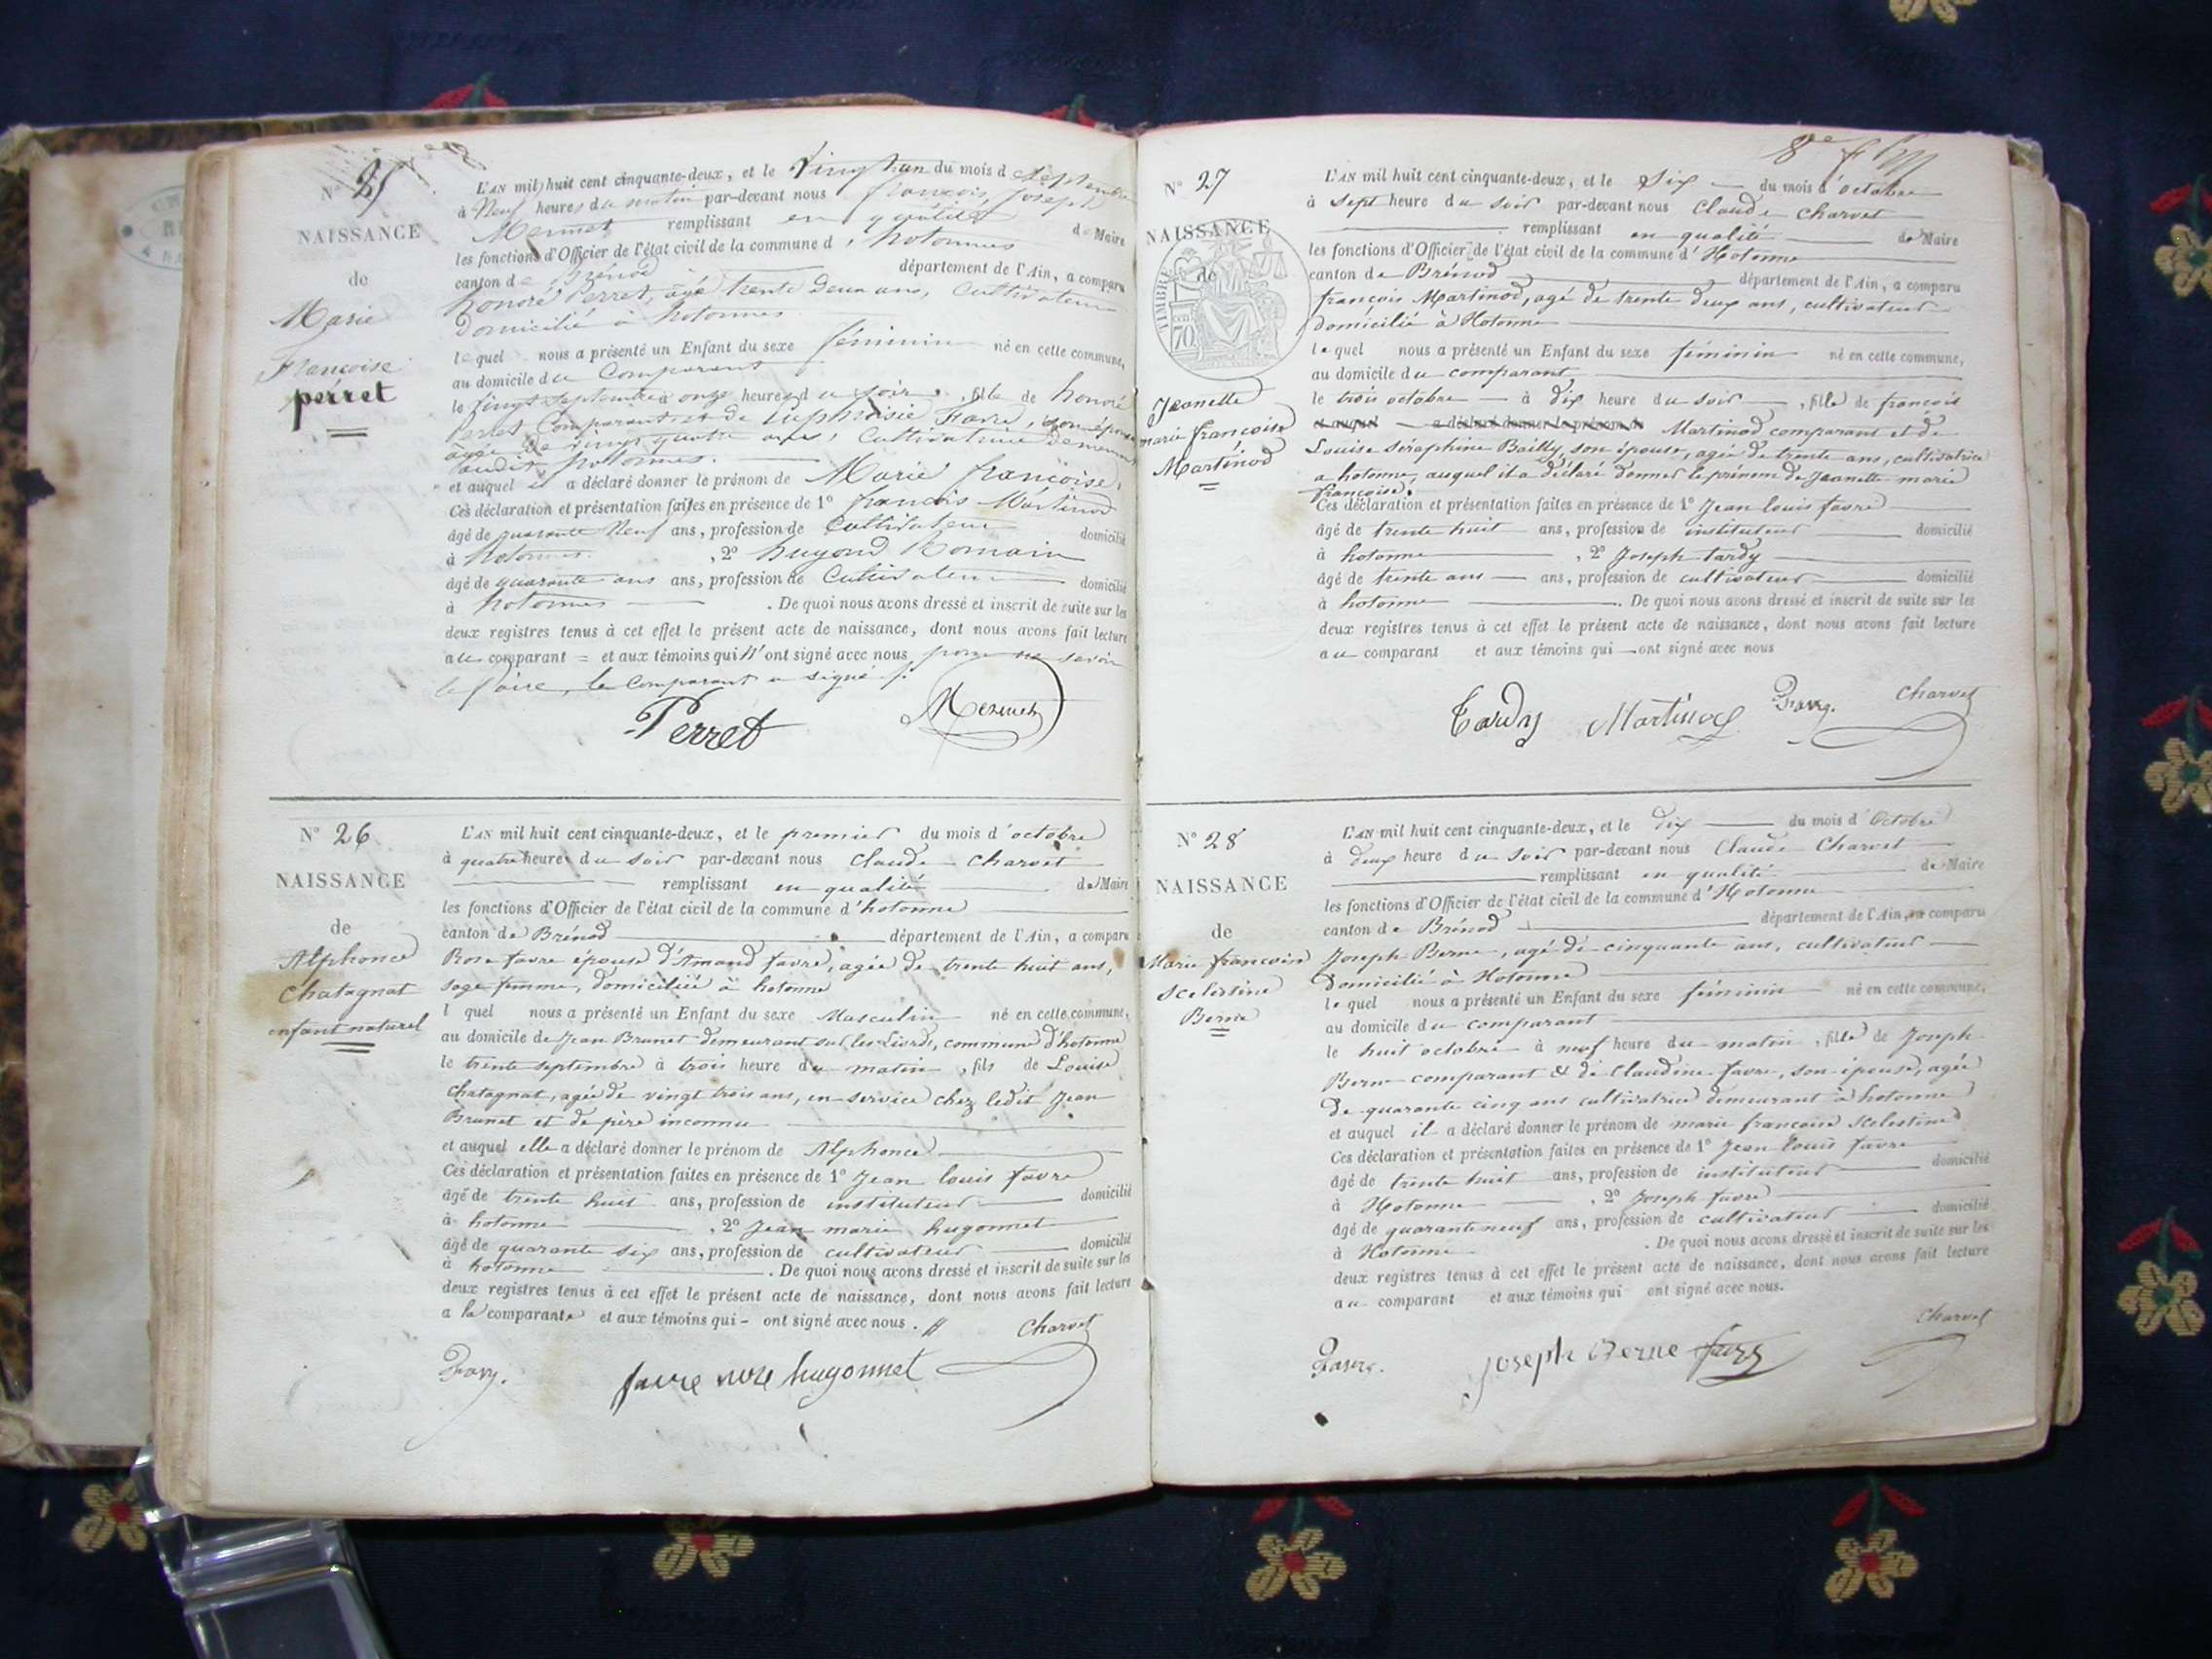 N° 25
NAISSANCE
de
Marie
Françoise
perret
L'AN mil huit cent cinquante-deux, et le Vingt un du mois de septembre
à Neuf heures du matin par-devant nous françois, Joseph
Mermet remplissant en qualité de Maire
les fonctions d'Officier de l'état civil de la commune d'hotonnes
canton de Brénod département de l'Ain, a comparu
honoré Perret, âgé trente deux ans, Cultivateur
domicilié à hotonnes
lequel nous a présenté un Enfant du sexe féminin né en cette commune,
au domicile du Comparant
le vingt septembre à onze heures du soir, fille de honoré
Perret Comparant et de Euphrosie Favre, son épouse
âgée de vingt quatre ans, Cultivatrice
audit hotonnes.
et auquel il a déclaré donner le prénom de Marie françoise,
Ces déclaration et présentation faites en présence de 1° francois Martinod
âgé de quarante Neuf ans, profession de Cultivateur domicilié
à hotonnes. , 2° hugond Romain
âgé de quarante ans ans, profession de Cultivateur domicilié
à hotonnes . De quoi nous avons dressé et inscrit de suite sur les
deux registres tenus à cet effet le présent acte de naissance, dont nous avons fait lecture
au comparant = et aux témoins qui N'ont signé avec nous pour ne savoir
le faire, le Comparant a signé
Perret Mermet
N° 26
NAISSANCE
de
Alphonce
Chatagnat
enfant naturel
L'AN mil huit cent cinquante-deux, et le premier du mois d'octobre
à quatre heures du soir par-devant nous Claude Charvet
remplissant en qualité de Maire
les fonctions d'Officier de l'état civil de la commune d'hotonne
canton de Brénod département de l'Ain, a comparu
Rose favre épouse d'Amand favre, agée de trente huit ans,
sage femme, domiciliée à hotonne
l quel nous a présenté un Enfant du sexe Masculin né en cette commune,
au domicile de Jean Brunet demeurant sur les Liords, commune d'hotonne
le trente septembre à trois heure du matin, fils de Louise
Chatagnat, agée de vingt trois ans, en service chez ledit Jean
Brunet et de père inconnu
et auquel elle a déclaré donner le prénom de Alphonce
Ces déclaration et présentation faites en présence de 1° Jean louis favre
âgé de trente huit ans, profession de instituteur domicilié
à hotonne , 2° Jean marie hugonnet
âgé de quarante six ans, profession de cultivateur domicilié
à hotonne . De quoi nous avons dressé et inscrit de suite sur les
deux registres tenus à cet effet le présent acte de naissance, dont nous avons fait lecture
a la comparante et aux témoins qui - ont signé avec nous. //
Charvet
Favre. favre rose hugonnet
N° 27
NAISSANCE
de
TIMBRE
70
Jeanette
marie françoise
Martinod
8e
L'AN mil huit cent cinquante-deux, et le Six du mois d'octobre
à sept heure du soir par-devant nous Claude Charvet
remplissant en qualité de Maire
les fonctions d'Officier de l'état civil de la commune d'Hotonne
canton de Brénod département de l'Ain, a comparu
françois Martinod, agé de trente deux ans, cultivateur
domicilié à Hotonne
lequel nous a présenté un Enfant du sexe féminin né en cette commune,
au domicile du comparant
le trois octobre à dix heure du soir , fille de francois
et auquel a déclaré donner le prénom de Martinod comparant et de
Louise Séraphine Bailly, son épouse, agée de trente ans, cultivatrice
a hotonne, auquel il a déclaré donner le prénom de Jeanette marie
françoise.
Ces déclaration et présentation faites en présence de 1° Jean louis favre
âgé de trente huit ans, profession de instituteur domicilié
à hotonne , 2° Joseph tardy
âgé de trente ans ans, profession de cultivateur domicilié
à hotonne . De quoi nous avons dressé et inscrit de suite sur les
deux registres tenus à cet effet le présent acte de naissance, dont nous avons fait lecture
au comparant et aux témoins qui ont signé avec nous
Tardy Martinod Favre. Charvet
N° 28
NAISSANCE
de
Marie françoise
Scelestine
Berne
L'AN mil huit cent cinquante-deux, et le dix du mois d'Octobre
à deux heure du soir par-devant nous Claude Charvet
remplissant en qualité de Maire
les fonctions d'Officier de l'état civil de la commune d'Hotonne
canton de Brénod département de l'Ain, a comparu
Joseph Berne, agé de cinquante ans, cultivateur
Domicilié à Hotonne
lequel nous a présenté un Enfant du sexe féminin né en cette commune,
au domicile du comparant
le huit octobre à neuf heure du matin , fille de Joseph
Berne comparant & de Claudine favre, son épouse, agée
de quarante cinq ans cultivatrice demeurant à hotonne
et auquel il a déclaré donner le prénom de marie francoise Scelestine
Ces déclaration et présentation faites en présence de 1° Jean louis favre
âgé de trente huit ans, profession de instituteur domicilié
à Hotonne , 2° Joseph favre
âgé de quarante neuf ans, profession de cultivateur domicilié
à Hotonne . De quoi nous avons dressé et inscrit de suite sur les
deux registres tenus à cet effet le présent acte de naissance, dont nous avons fait lecture
au comparant et aux témoins qui ont signé avec nous.
Charvet
Favre. Joseph Berne favre